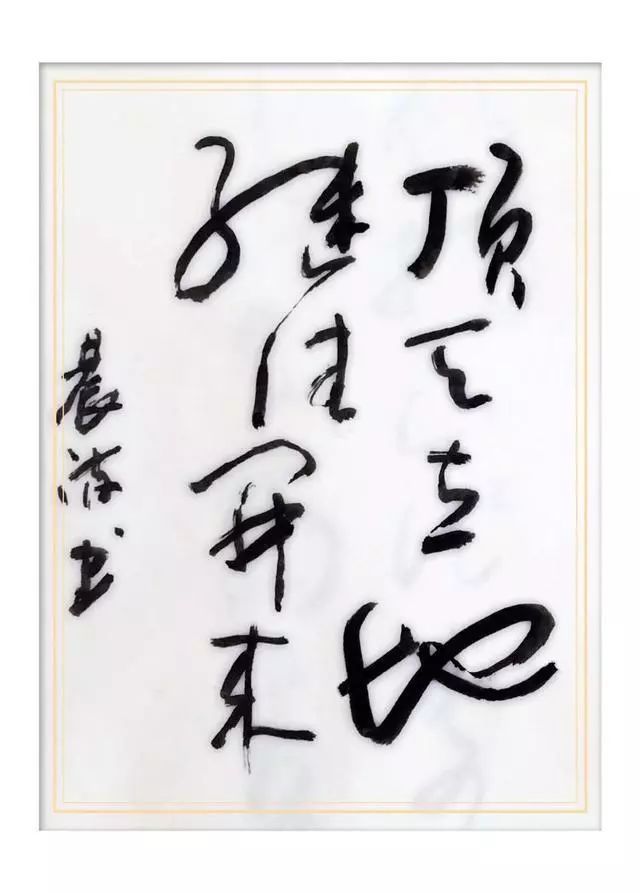 顶天立地
继往开来
晨涛书